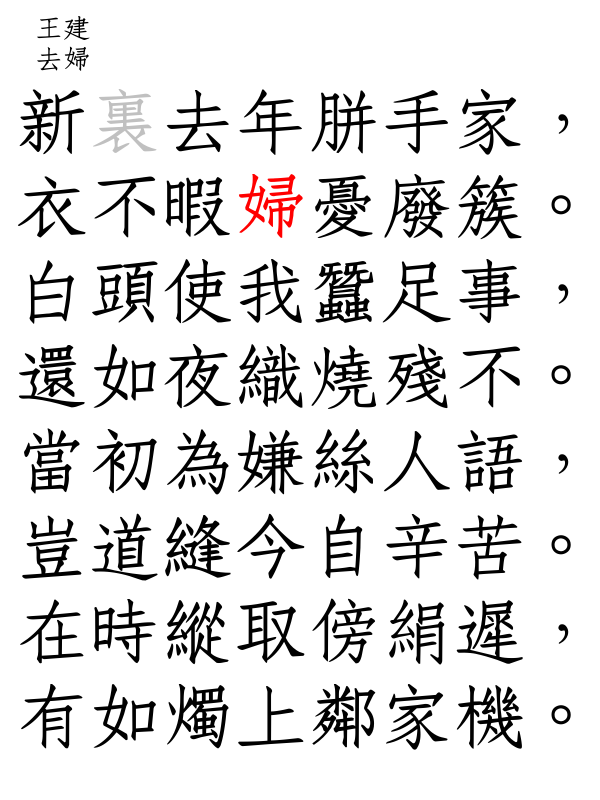 王建
去婦
新裏去年胼手家，
衣不暇婦憂廢簇。
白頭使我蠶足事，
還如夜織燒殘不。
當初為嫌絲人語，
豈道縫今自辛苦。
在時縱取傍絹遲，
有如燭上鄰家機。